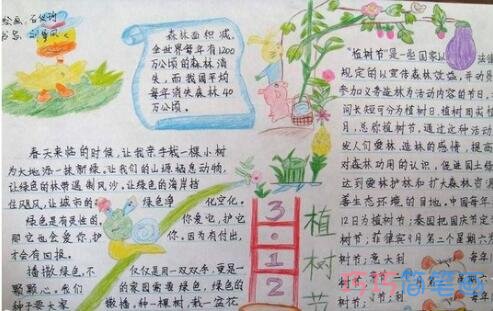 绘画:石
书写:
森林面积减,
全世界每年有1200
万公顷的森林消
失,而我国平均
每年消失森林40
万公顷。
春天来临的时候,让我亲手栽一棵小树
为大地添一抹新绿,让我们的山源栖息动物,
让绿色的林带遏制风沙,让绿色的海岸挡
住飓风,让城市的绿色净化空化。
绿色是有灵性的,你爱它,护它
那它也会爱你,护你。因为有付出,
才会有回报。
播撒绿色,不仅仅用一双双手,更是一
颗颗心。我们的家园需要绿色,绿色的
种子要大家撒播,种一棵树,栽一盆花
3.12
植树节
"植树节"是一些国家以法律
规定的以宣传森林效益,并动员
参加义务造林为活动内容的节日,
间长短可分为植树日,植树周和植
月,总称植树节,通过这种活动
发人们爱林、造林的感情,提高
对森林功用的认识,促进国土绿
达到爱林护林和扩大森林资
善生态环境的目地。中国每年
12日为植树节;泰国把国庆定
树节;菲律宾9月第二个星期六
树节;意大利每年
树节;